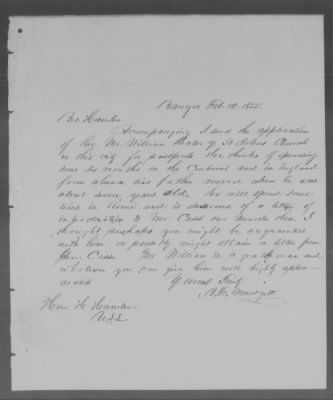 Bangor Feb 10, 1855.
Bro. Hamlin
Accompanying I send the application
of Rev. Mr. William Hoale of St Johns Church
in this city for passports. He thinks of spending
some six months on the Continent and in England
from whence his father moved when he was
about seven years old. He will spend some
time in Rome and is desirous of a letter of
introduction to Mr Cass our Minister there. I
thought perhaps you might be acquainted
with him or possibly might obtain a letter from
Gen Cass. Mr William is a good man and
whatever you can give him will highly appre-
ciated
Yours Truly
Hon H. Hamlin
U.S.S.